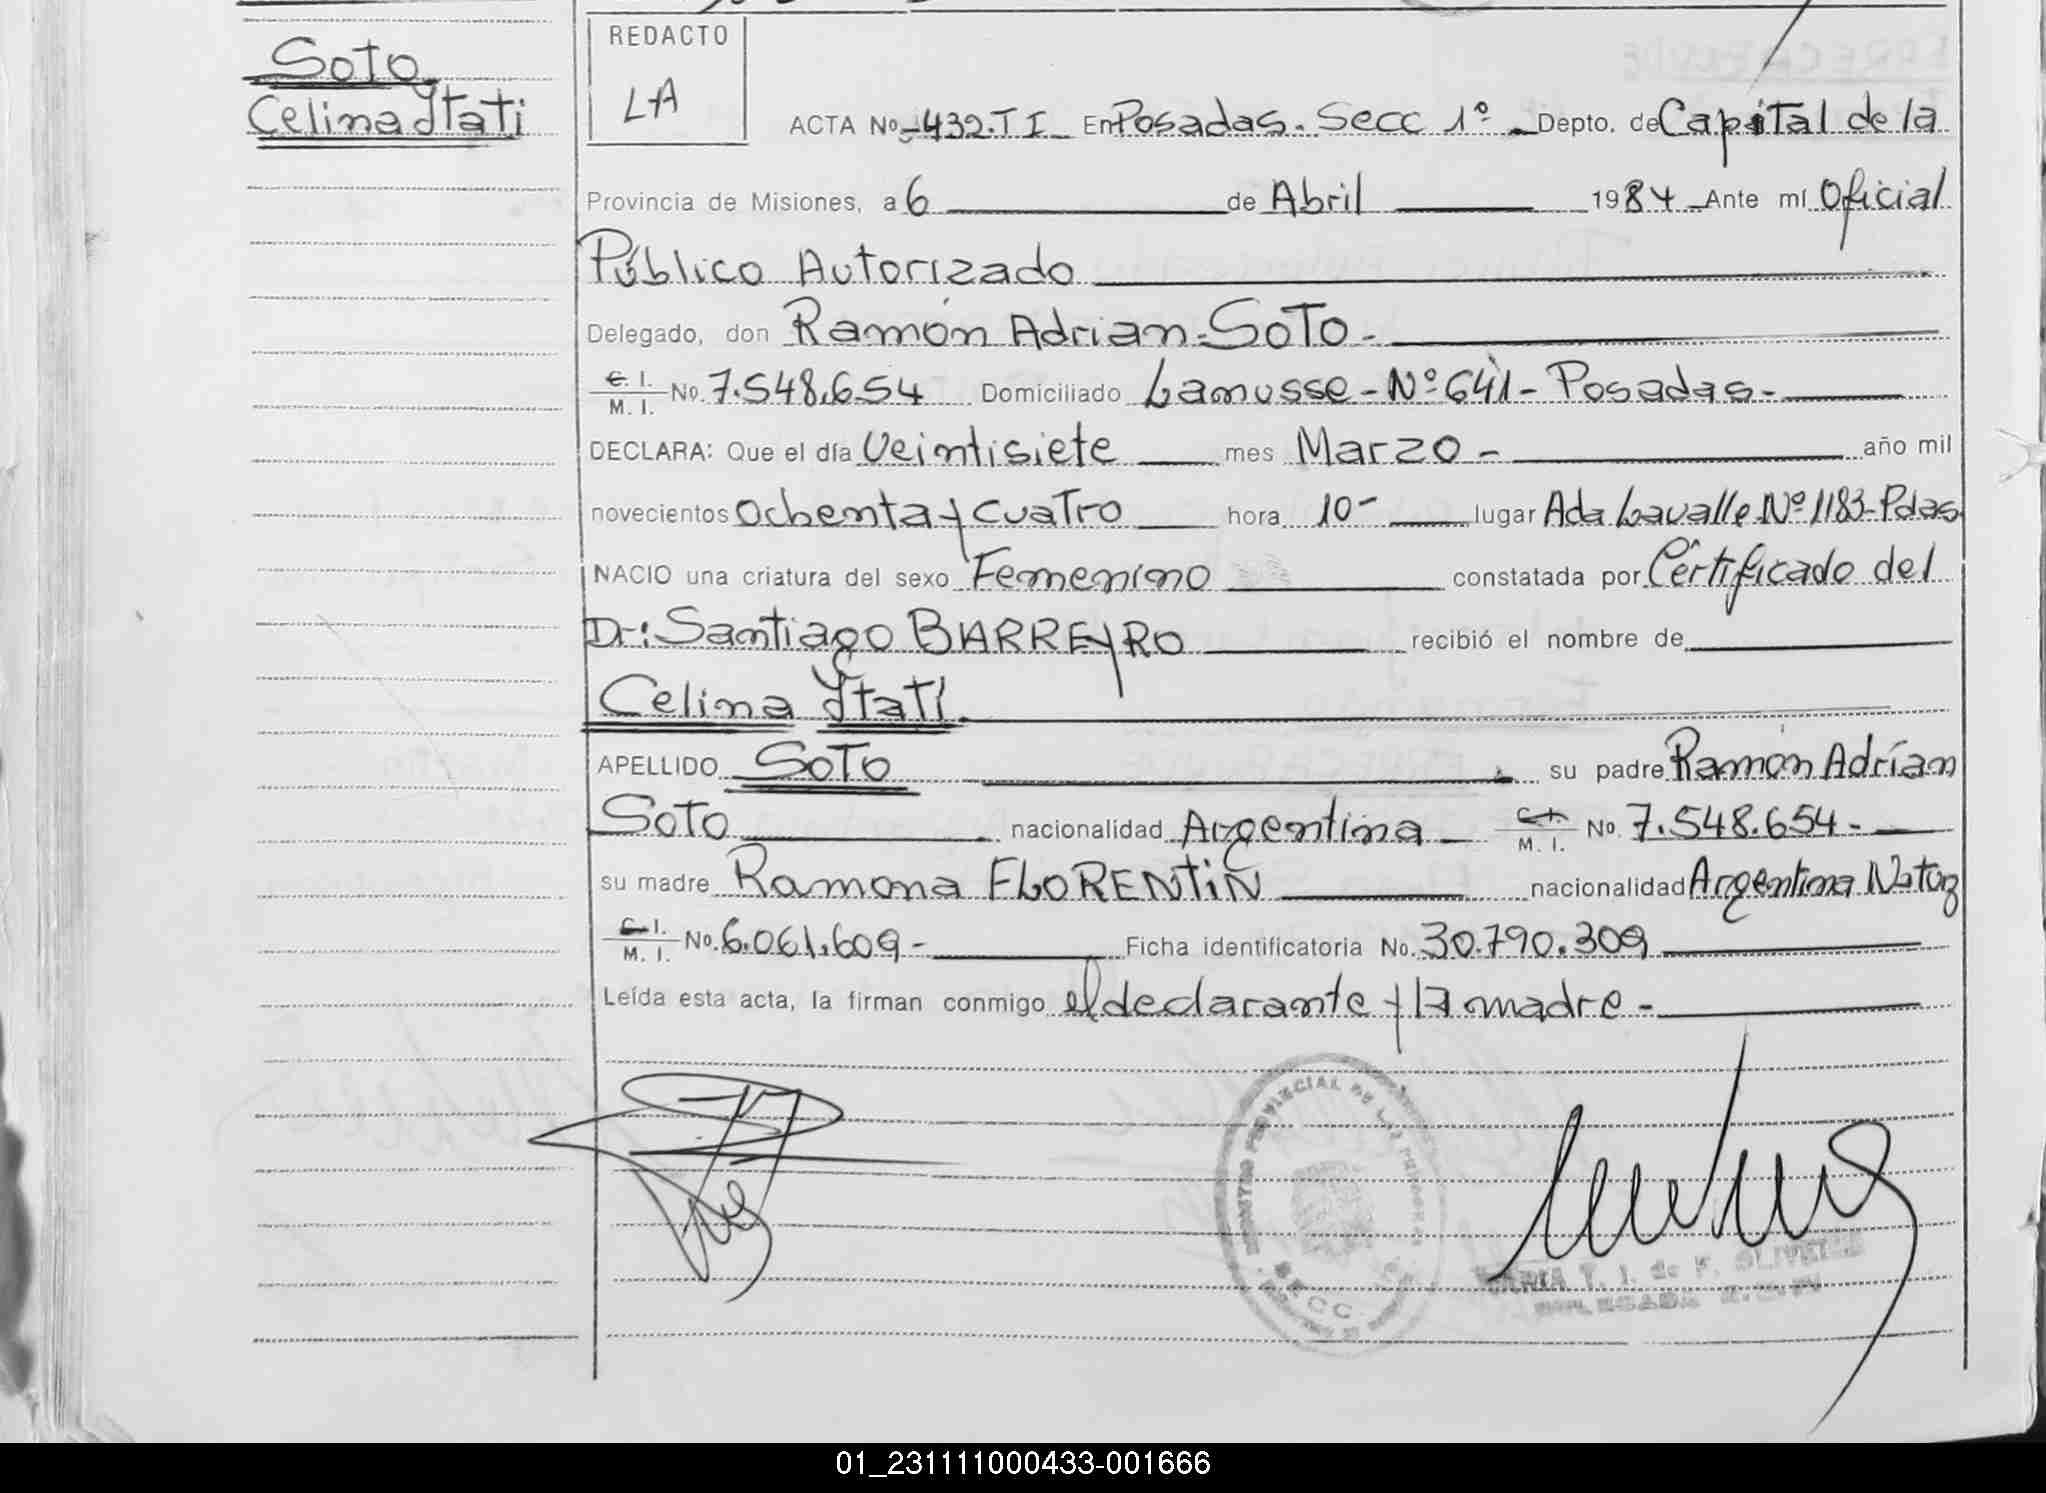 SOTO
Celina Ytati
REDACTO
LA
ACTA No 432.T I En Posadas. Secc 1º Depto. de Capital de la
Provincia de Misiones, a 6 de Abril 1984 Ante mí Oficial
Público Autorizado
Delegado, don Ramón Adrian SOTO -
C. I. / M. I. No. 7.548.654 Domiciliado Lanusse - Nº 641 - Posadas -
DECLARA: Que el día veintisiete mes Marzo - año mil
novecientos ochenta y cuatro hora 10- lugar Ada Lavalle Nº 1183-Pdas.
NACIO una criatura del sexo Femenino constatada por Certificado del
Dr: Santiago BARREYRO recibió el nombre de
Celina Ytatí
APELLIDO SOTO su padre Ramón Adrían
SOTO nacionalidad Argentina C.I. / M. I. No. 7.548.654 -
su madre Ramona FLORENTIÑ nacionalidad Argentina
C. I. / M. I. No. 6.061.609 - Ficha identificatoria No. 30.790.309
Leída esta acta, la firman conmigo el declarante y la madre -
REGISTRO PROVINCIAL DE LAS PERSONAS
MARIA T. I. de F. OLIVEIRA
01_231111000433-001666